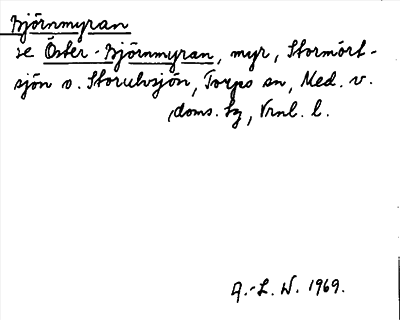 Björnmyran
se Öster-Björnmyran, myr, Stormört-
sjön o. Storulvsjön, Torps sn, Med. v.
doms. tg, Vrnl. l.
A.-L. W. 1969.